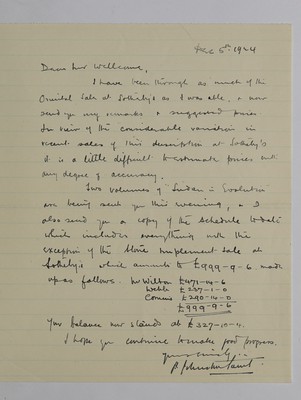 Dec 5th 1924
Dear Mr Wellcome,
I have been through as much of the
Oriental Sale at Sotheby's as I was able, & now
send you my remarks & suggested prices.
In view of the considerable variation in
recent sales of this description at Sotheby's
it is a little difficult to estimate prices with
any degree of accuracy.
Two volumes of "Sudan in Evolution"
are being sent you this evening, & I
also send you a copy of the Schedule to date
which includes everything with the
exception of the Stone Implement Sale at
Sotheby's which amounts to £999-9-6 made
up as follows. Mr Wilton £471-14-6
£237-1-0
£290-14-0
£999-9-6
Your balance now stands at £327-10-4.
I hope you continue to make good progress.
Yours sincerely,
P. Johnston Saint